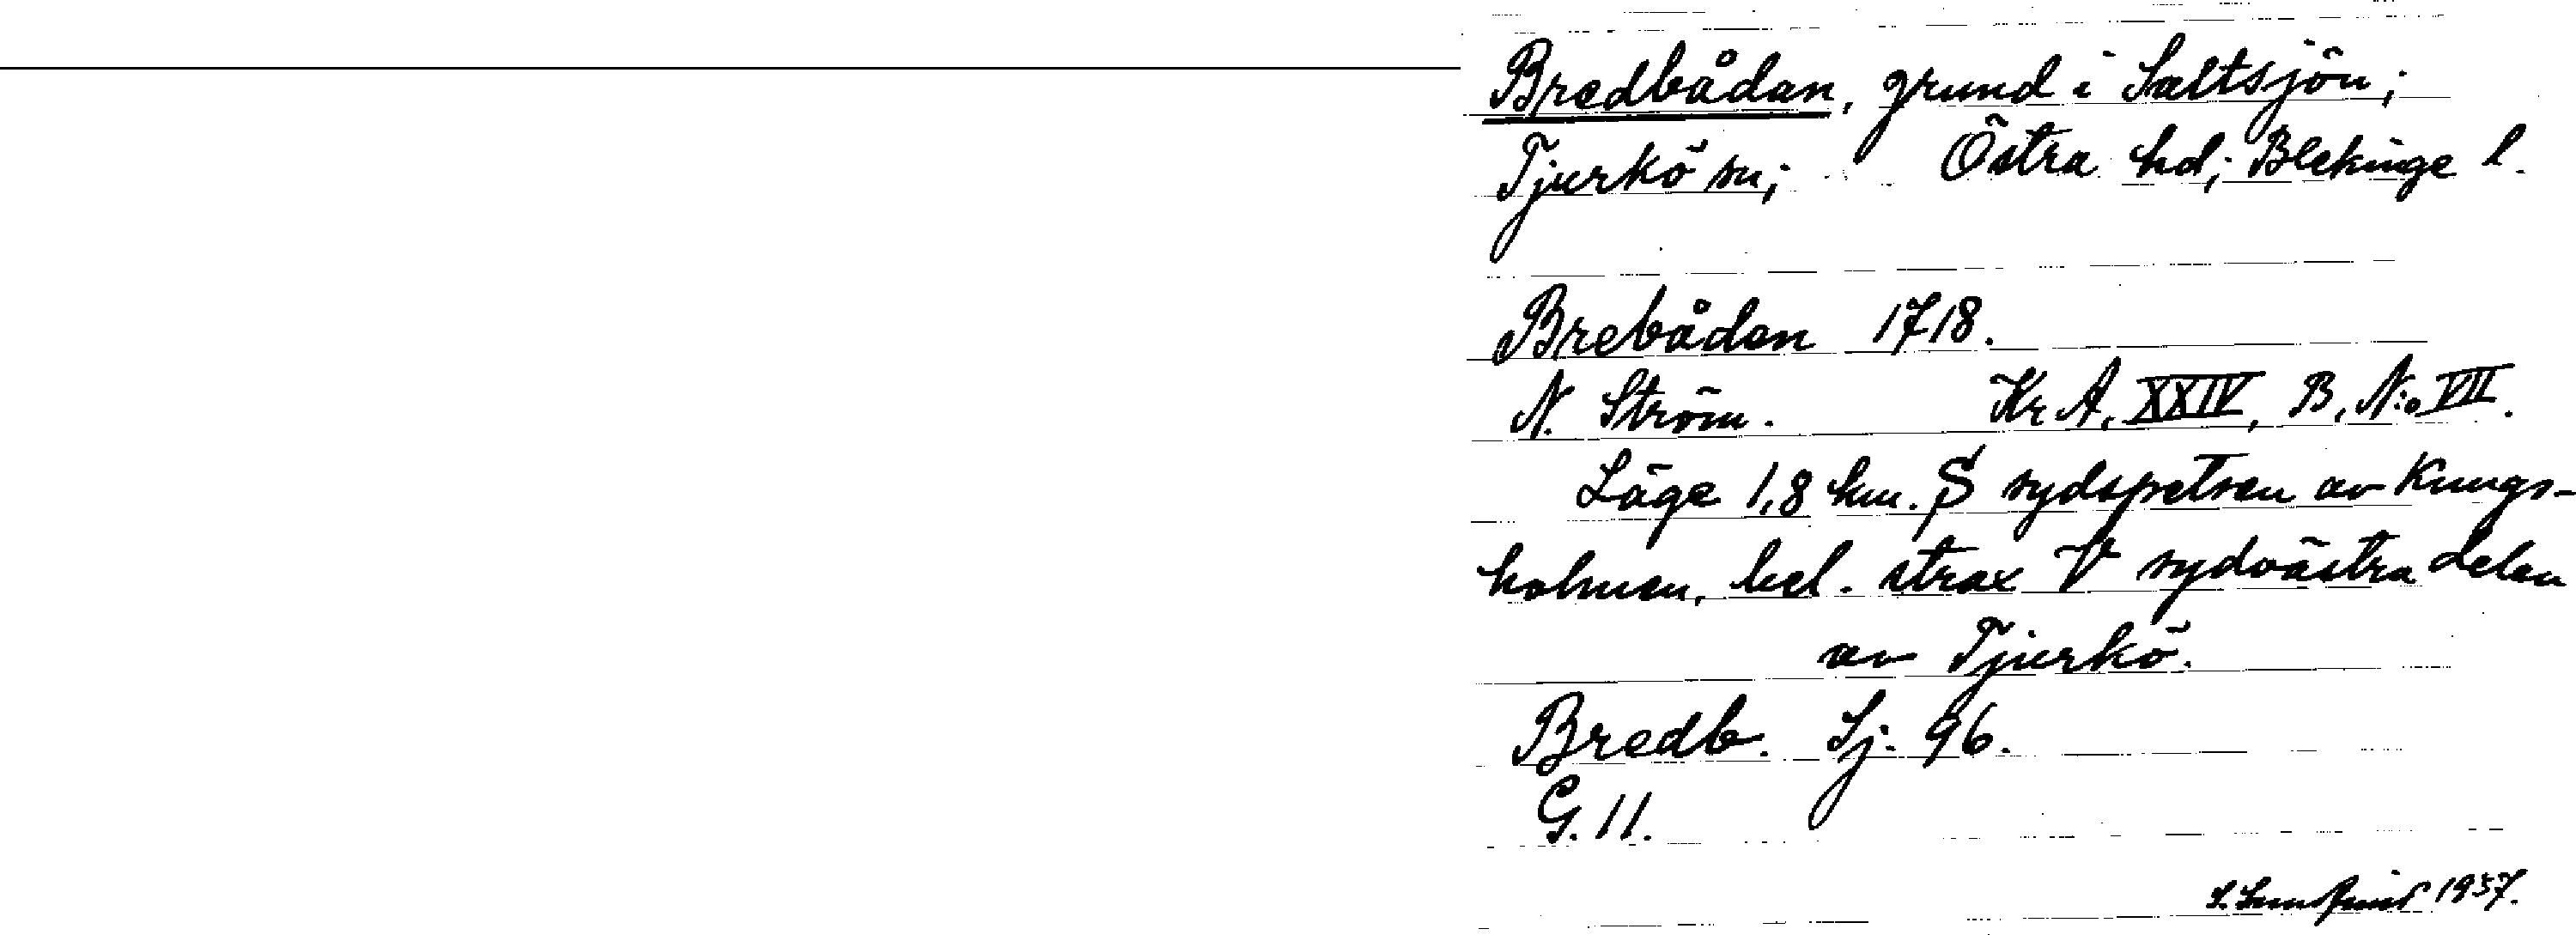 Bredbådan, grund i Saltsjön;
Tjurkö sn; Östra hd; Blekinge l.
Brebådan 1718.
N. Ström. Kr A, XXIV, B, N:o VII.
Läge 1,8 km. S sydspetsen av Kungs-
holmen, bel. strax V sydvästra delen
av Tjurkö.
Bredb. Sj. 96.
G. 11.
1937.